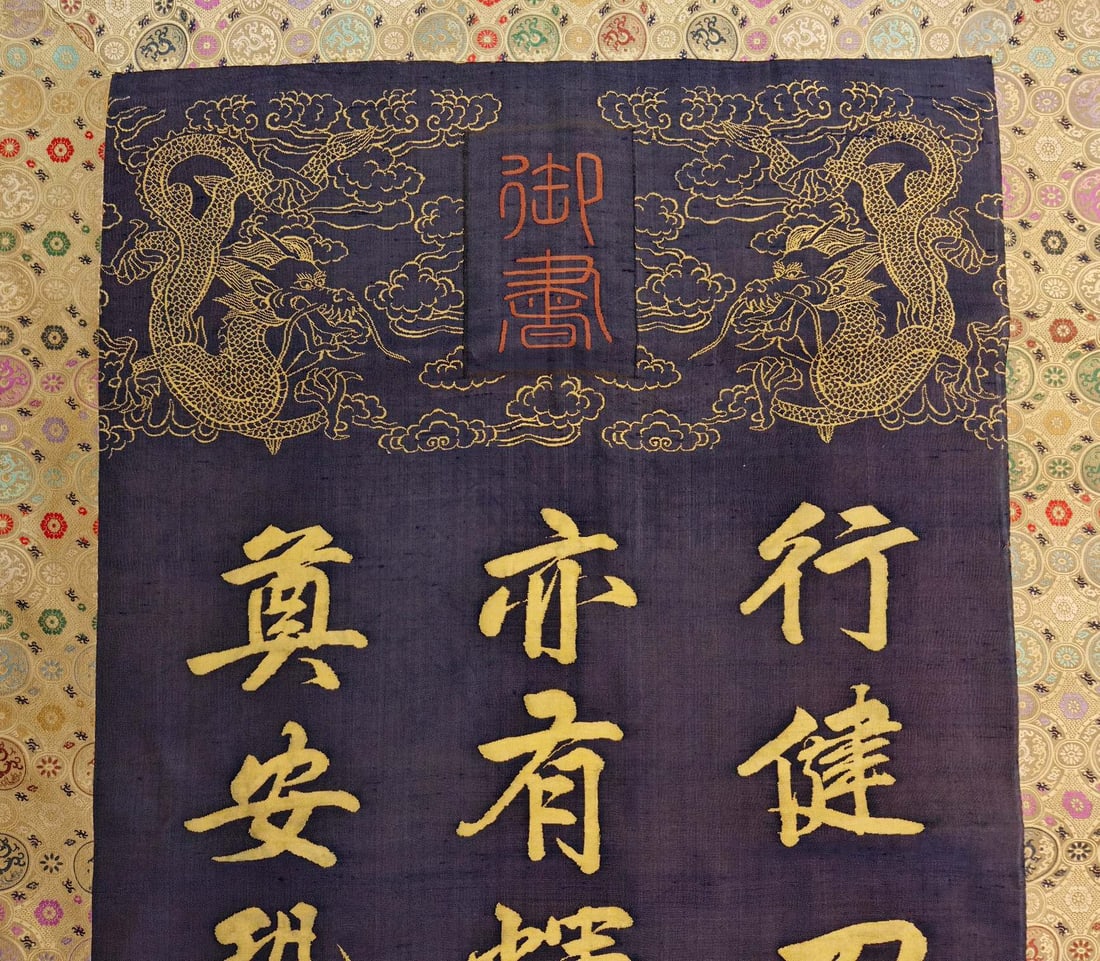 御書
行健
亦有
奠安